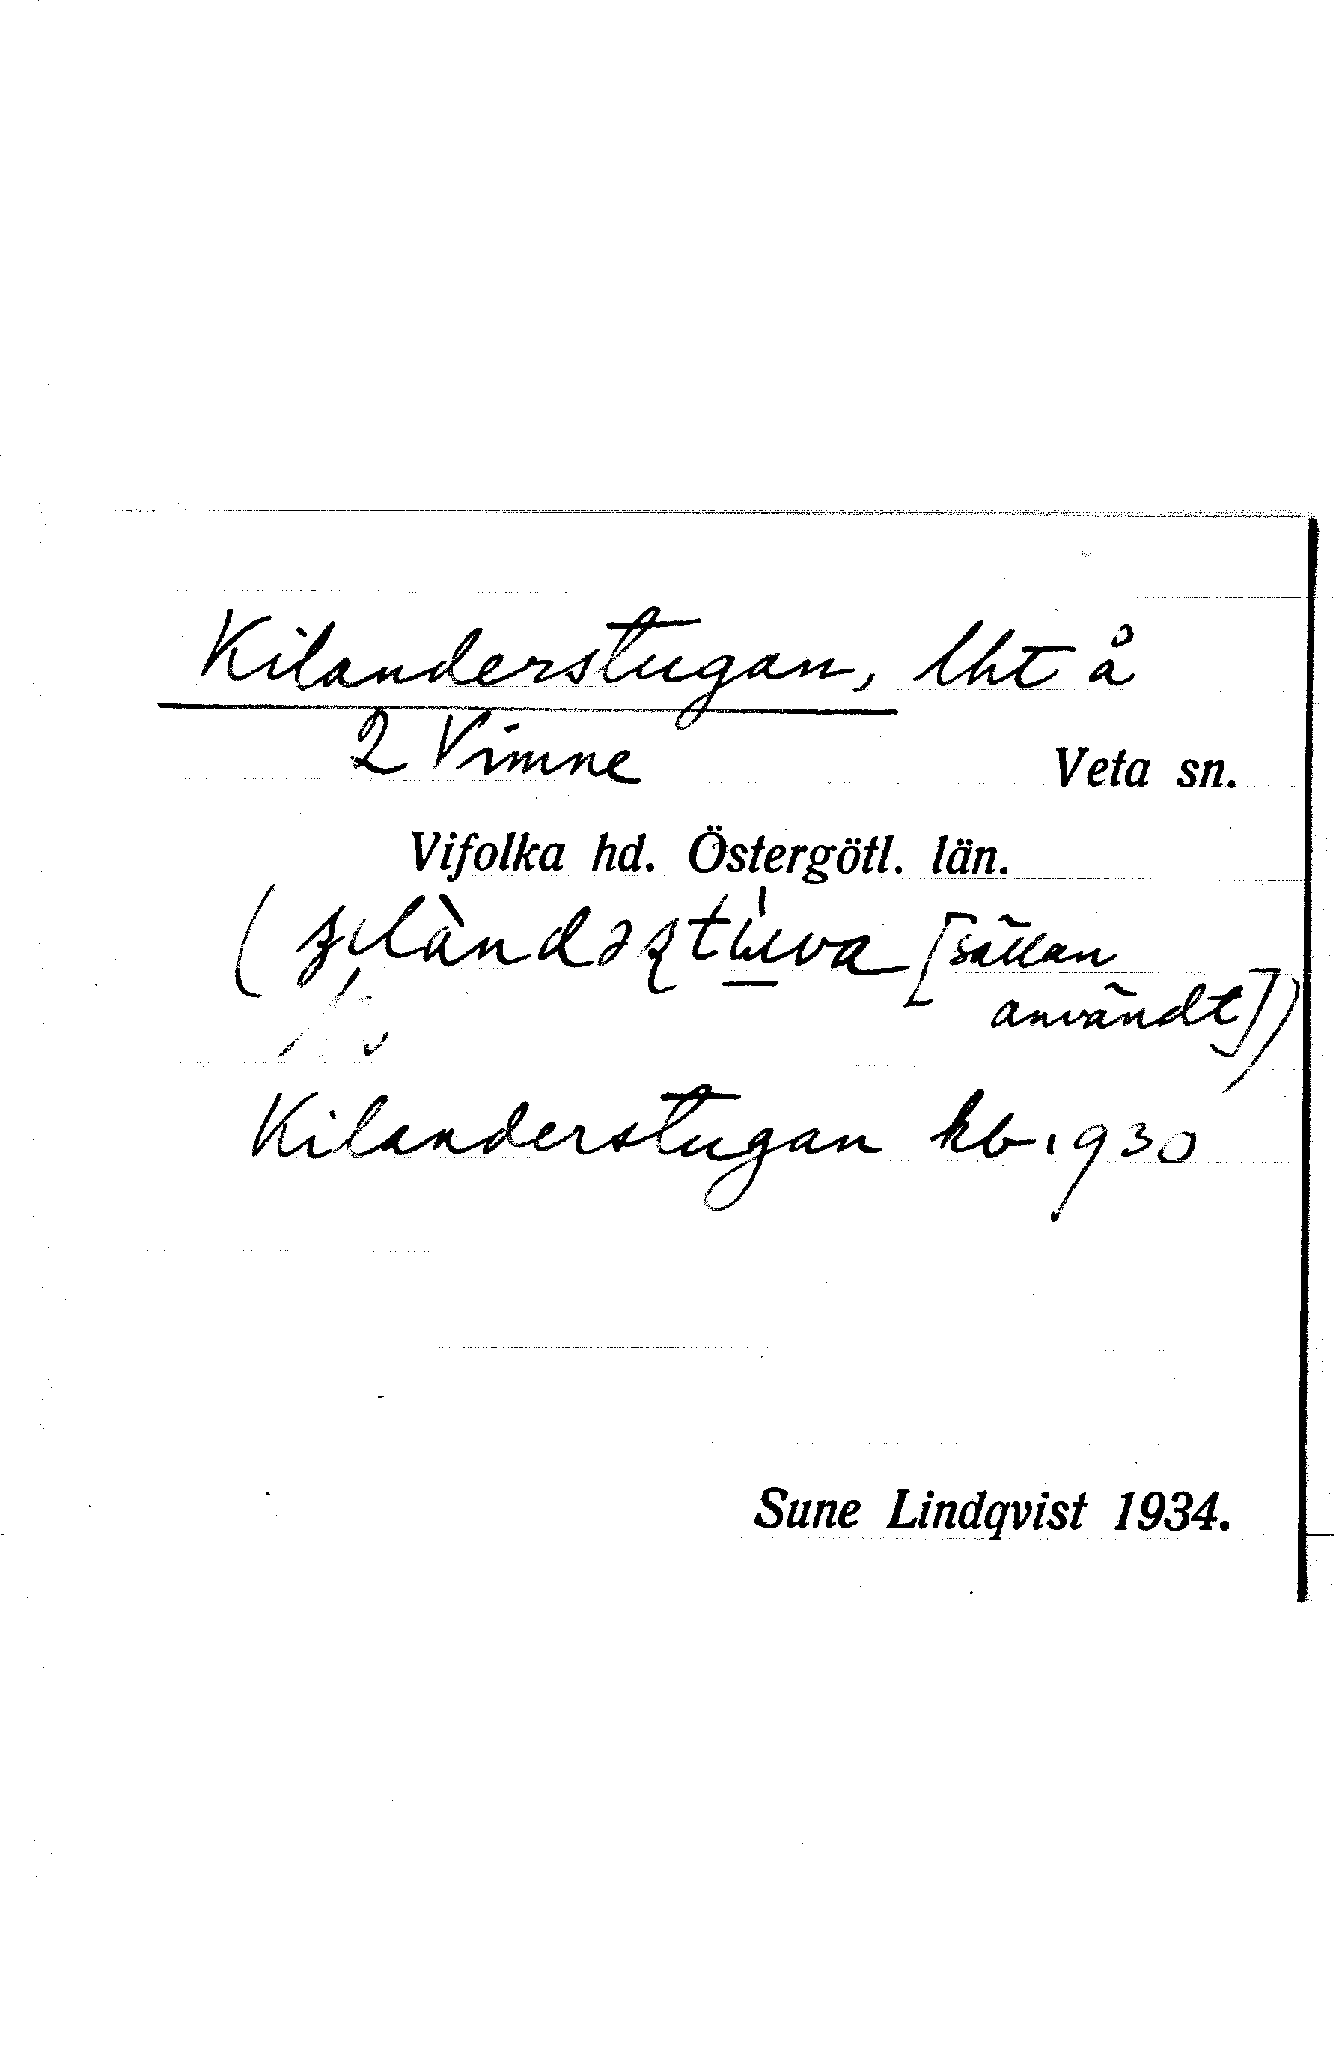 Kilanderstugan, lht å
2 Vimne Veta sn.
Vifolka hd. Östergötl. län.
( [sällan
användt])
Kilanderstugan kb 1930
Sune Lindqvist 1934.